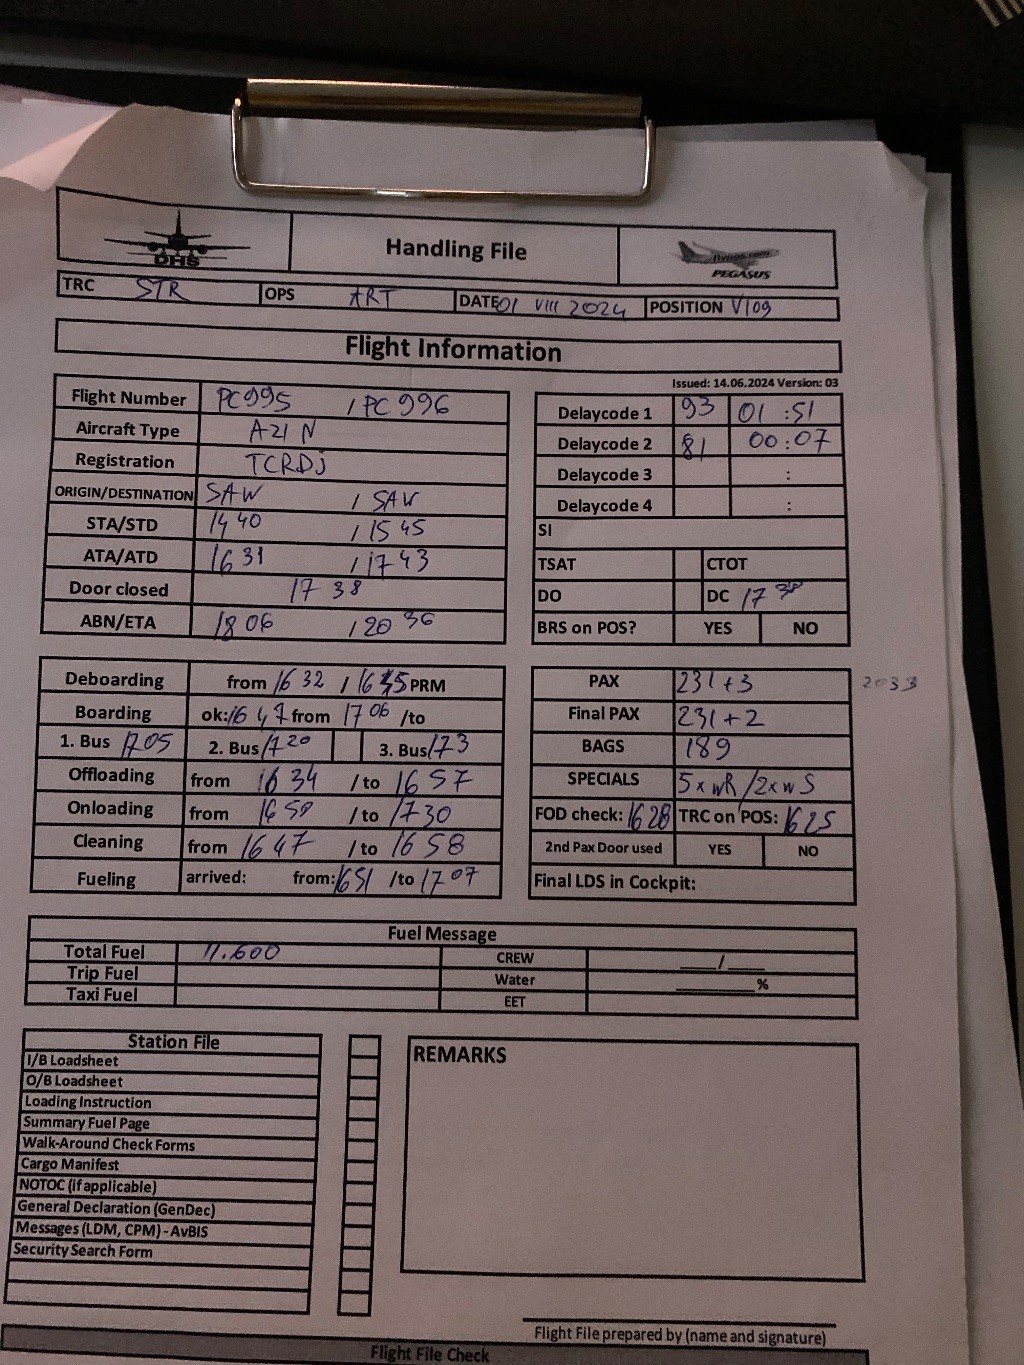 DHS
Handling File
flypgs.com
PEGASUS
TRC STR OPS ART DATE 01 VIII 2024 POSITION V109
Flight Information
Issued: 14.06.2024 Version: 03
Flight Number PC995 / PC 996
Aircraft Type A21 N
Registration TCRDJ
ORIGIN/DESTINATION SAW / SAW
STA/STD 14 40 / 15 45
ATA/ATD 16 31 / 17 43
Door closed 17 38
ABN/ETA 18 06 / 20 36
Delaycode 1 93 01 :51
Delaycode 2 81 00:07
Delaycode 3 :
Delaycode 4 :
SI
TSAT CTOT
DO DC 17 38
BRS on POS? YES NO
Deboarding from 16 32 / 16 45 PRM
Boarding ok: 16 47 from 17 06 /to
1. Bus 1705 2. Bus 17 20 3. Bus 173
Offloading from 16 34 /to 16 57
Onloading from /to 1730
Cleaning from 16 47 /to 16 58
Fueling arrived: from: 1651 /to 17 07
PAX 231 +3 2033
Final PAX 231 +2
BAGS 189
SPECIALS 5 x WR / 2 x WS
FOD check: 1628 TRC on POS: 1625
2nd Pax Door used YES NO
Final LDS in Cockpit:
Fuel Message
Total Fuel 11.600 CREW ___/___
Trip Fuel Water ______%
Taxi Fuel EET
Station File
I/B Loadsheet
O/B Loadsheet
Loading Instruction
Summary Fuel Page
Walk-Around Check Forms
Cargo Manifest
NOTOC (if applicable)
General Declaration (GenDec)
Messages (LDM, CPM) - AvBIS
Security Search Form
REMARKS
Flight File prepared by (name and signature)
Flight File Check